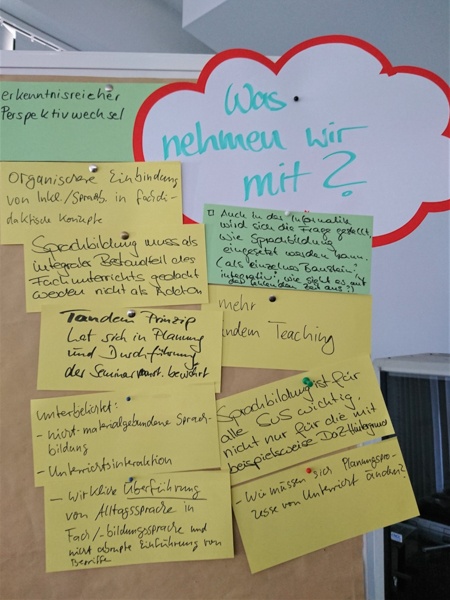 erkenntnisreicher
Perspektivwechsel
Was
nehmen wir
mit?
Organischere Einbindung
von Inkl./Sprachb. in fachdi-
daktische Konzepte
Sprachbildung muss als
integraler Bestandteil des
Fachunterrichts gedacht
werden nicht als Add on
Auch in der Informatik
wird sich die Frage gestellt,
wie Sprachbildung
eingesetzt werden kann.
(als einzelner Baustein,
integrativ, wie sieht es mit
Zeit aus?)
mehr
Tandem Teaching
Tandem Prinzip
hat sich in Planung
und Durchführung
des Seminars bewährt
Unterbelichtet:
- nicht-materialgebundene Sprach-
bildung
- Unterrichtsinteraktion
Sprachbildung ist für
alle SuS wichtig,
nicht nur für die mit
beispielsweise DaZ-Hintergrund
- Wirkliche Überführung
von Alltagssprache in
Fach-/-bildungssprache und
nicht abrupte Einführung von
Begriffe
- Wie müssen sich Planungspro-
zesse von Unterricht ändern?